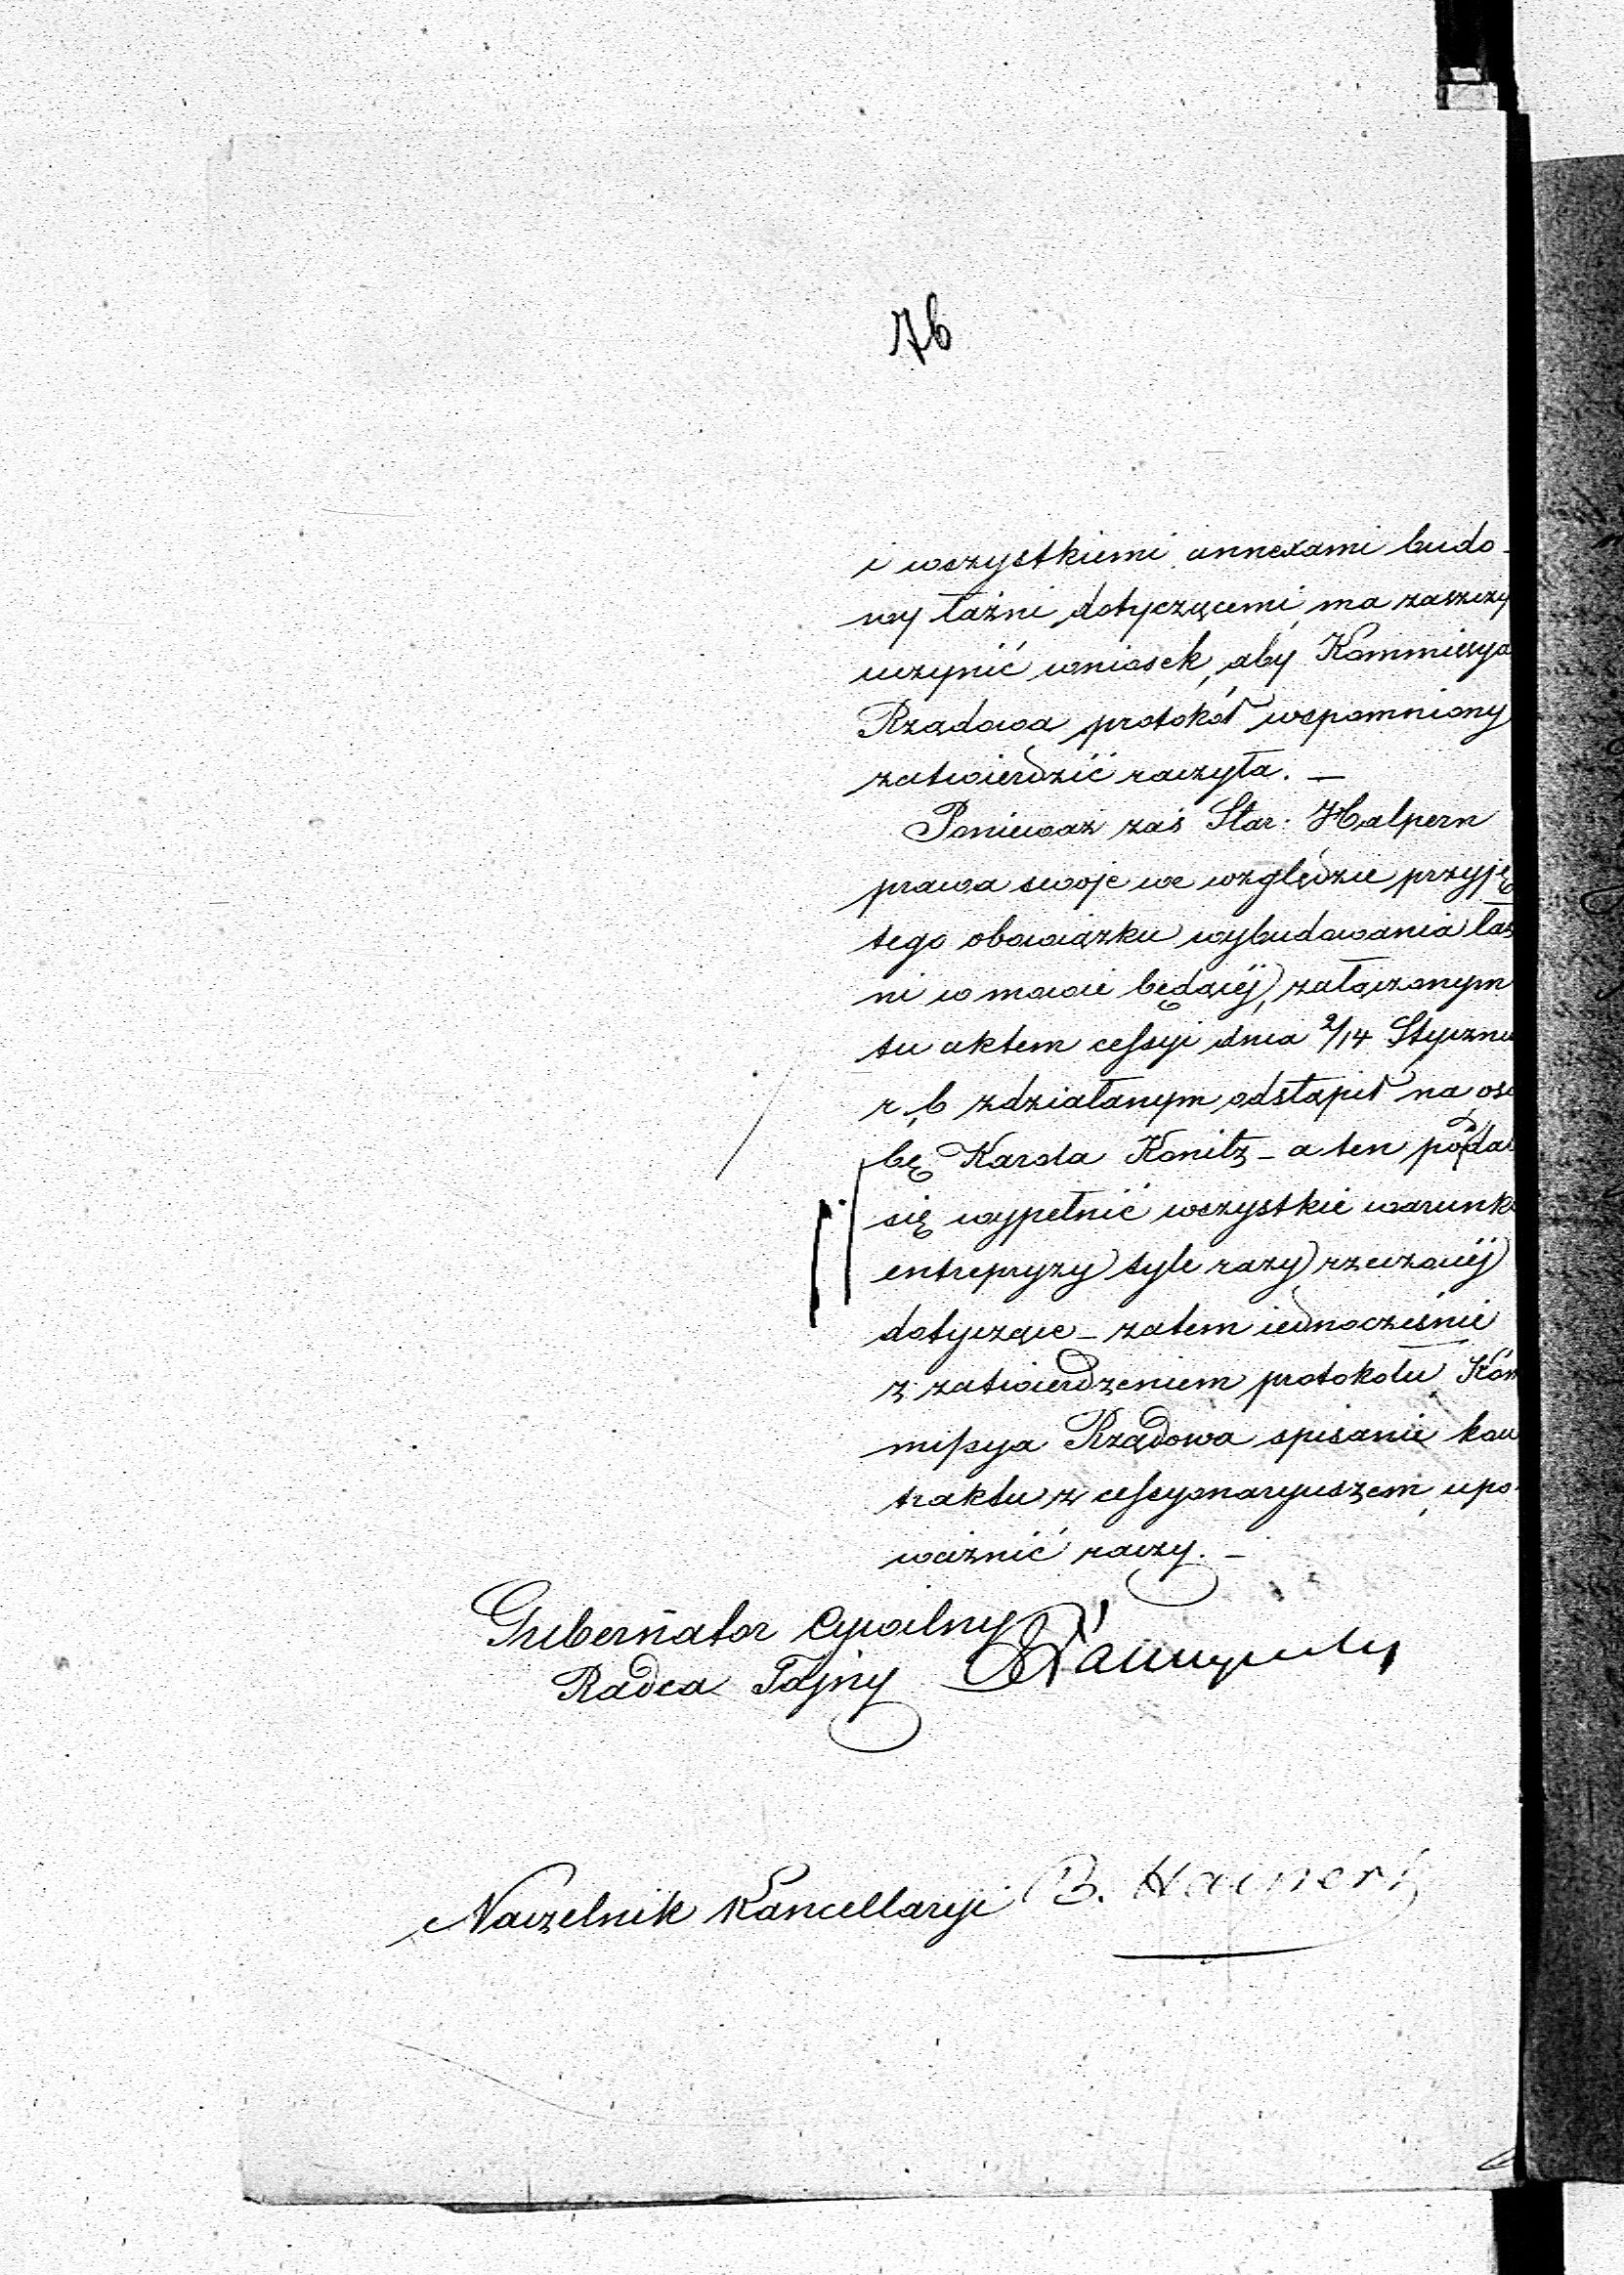 76
i wszystkiemi annexami budo-
wy łaźni dotyczącemi, ma zaszczy
uczynić wniosek, aby Kommissya
Rządowa protokół wspomniony
zatwierdzić raczyła. —
Ponieważ zaś Star. Halpern
prawa swoje we względzie przyję
tego obowiązku wybudowania łaź
ni w mowie będącéj, załączonym
tu aktem cessyi dnia 2/14 Stycznia
r. b. zdziałanym odstąpił na oso
bę Karola Konitz – a ten podał
się wypełnić wszystkie warunk
entrepryzy tyle razy rzeczonéj
dotyczące – zatem iednocześnie
z zatwierdzeniem protokołu Kom
missya Rządowa spisanie kon
traktu z cessyonaryuszem upo
ważnić raczy. –
Gubernator Cywilny
Radca Tajny
Naczelnik Kancellaryi B. Hajnert